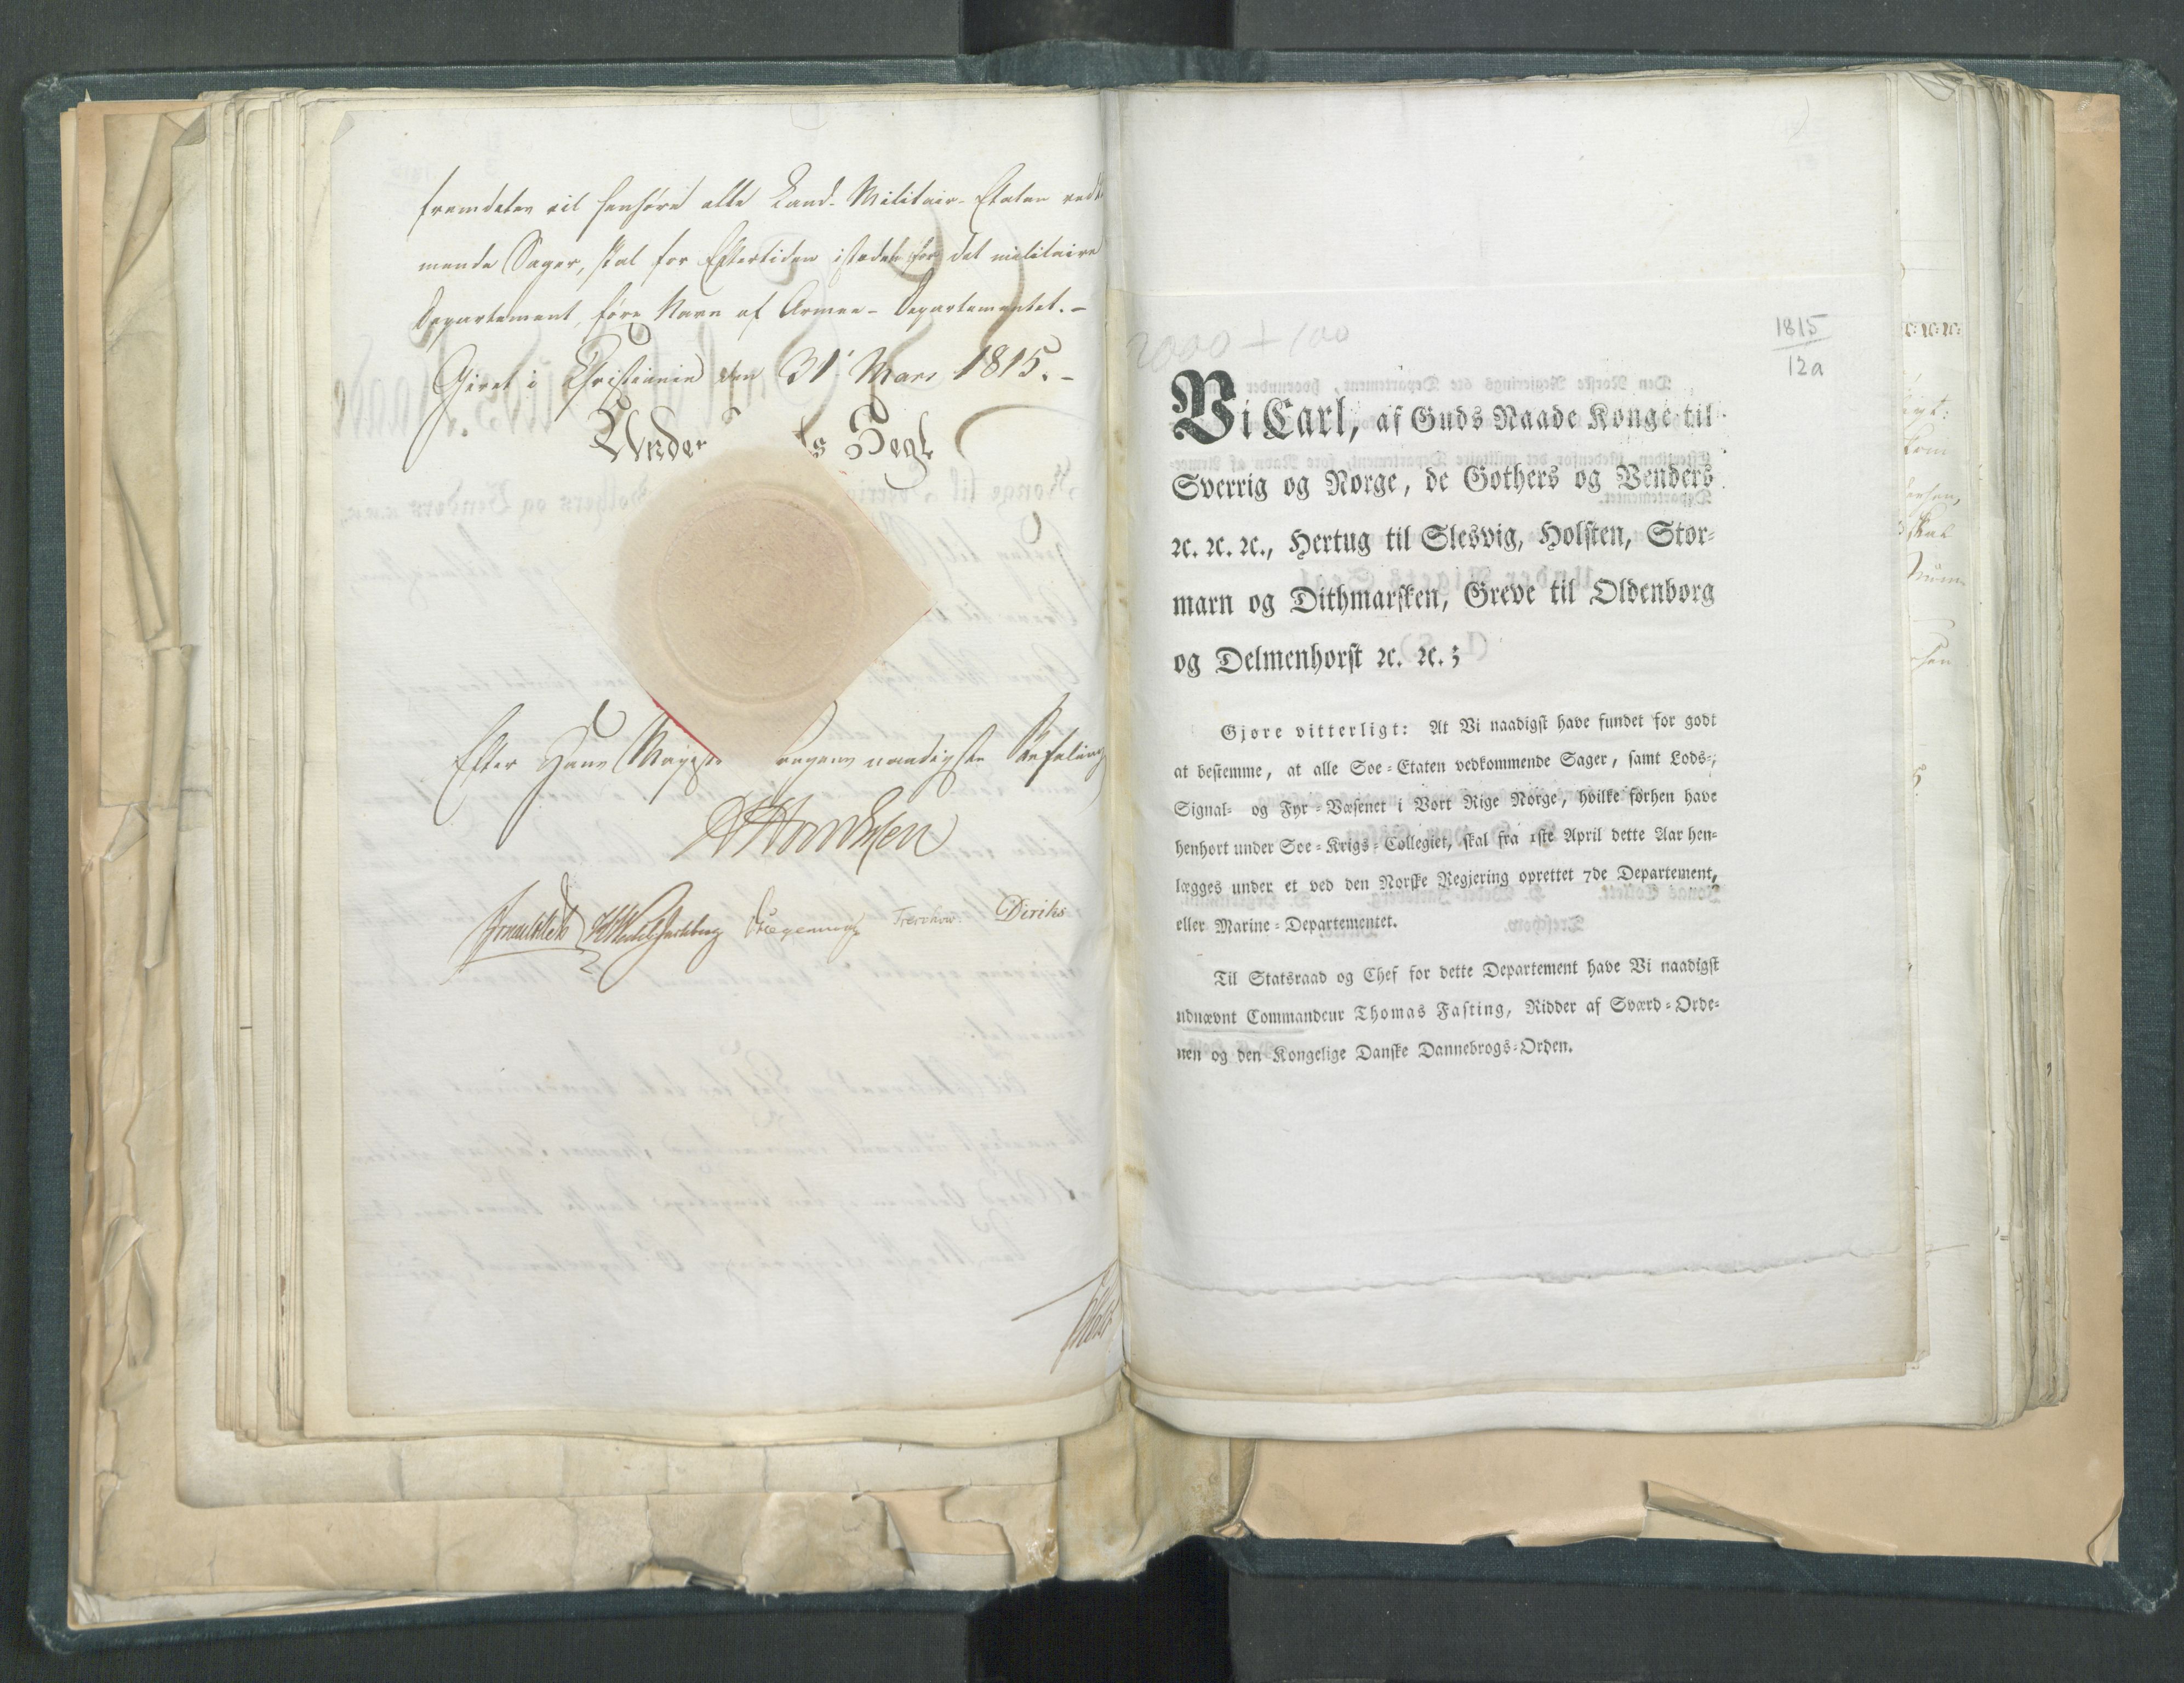 fremdeles vil henhøre alle Land-Militair-Etaten vedkom
mende Sager, skal for Eftertiden istedetfor det militaire
Departement, føre Navn af Armee-Departementet.-
Givet i Christiania den 31. Mars 1815.-
Under s Segl
Efter Hans Majestæ naadigste Befaling
Diriks
2000 + 100
1815
12a
Vi Carl, af Guds Naade Konge til
Sverrig og Norge, de Gothers og Venders
ꝛc. ꝛc. ꝛc., Hertug til Slesvig, Holsten, Stor-
marn og Dithmarsken, Greve til Oldenborg
og Delmenhorst ꝛc. ꝛc.;
Gjøre vitterligt: At Vi naadigst have fundet for godt
at bestemme, at alle Søe-Etaten vedkommende Sager, samt Lods-,
Signal- og Fyr-Væsenet i Vort Rige Norge, hvilke forhen have
henhørt under Søe-Krigs-Collegiet, skal fra 1ste April dette Aar hen-
lægges under et ved den Norske Regjering oprettet 7de Departement,
eller Marine-Departementet.
Til Statsraad og Chef for dette Departement have Vi naadigst
udnævnt Commandeur Thomas Fasting, Ridder af Sværd-Orde-
nen og den Kongelige Danske Dannebrogs-Orden.